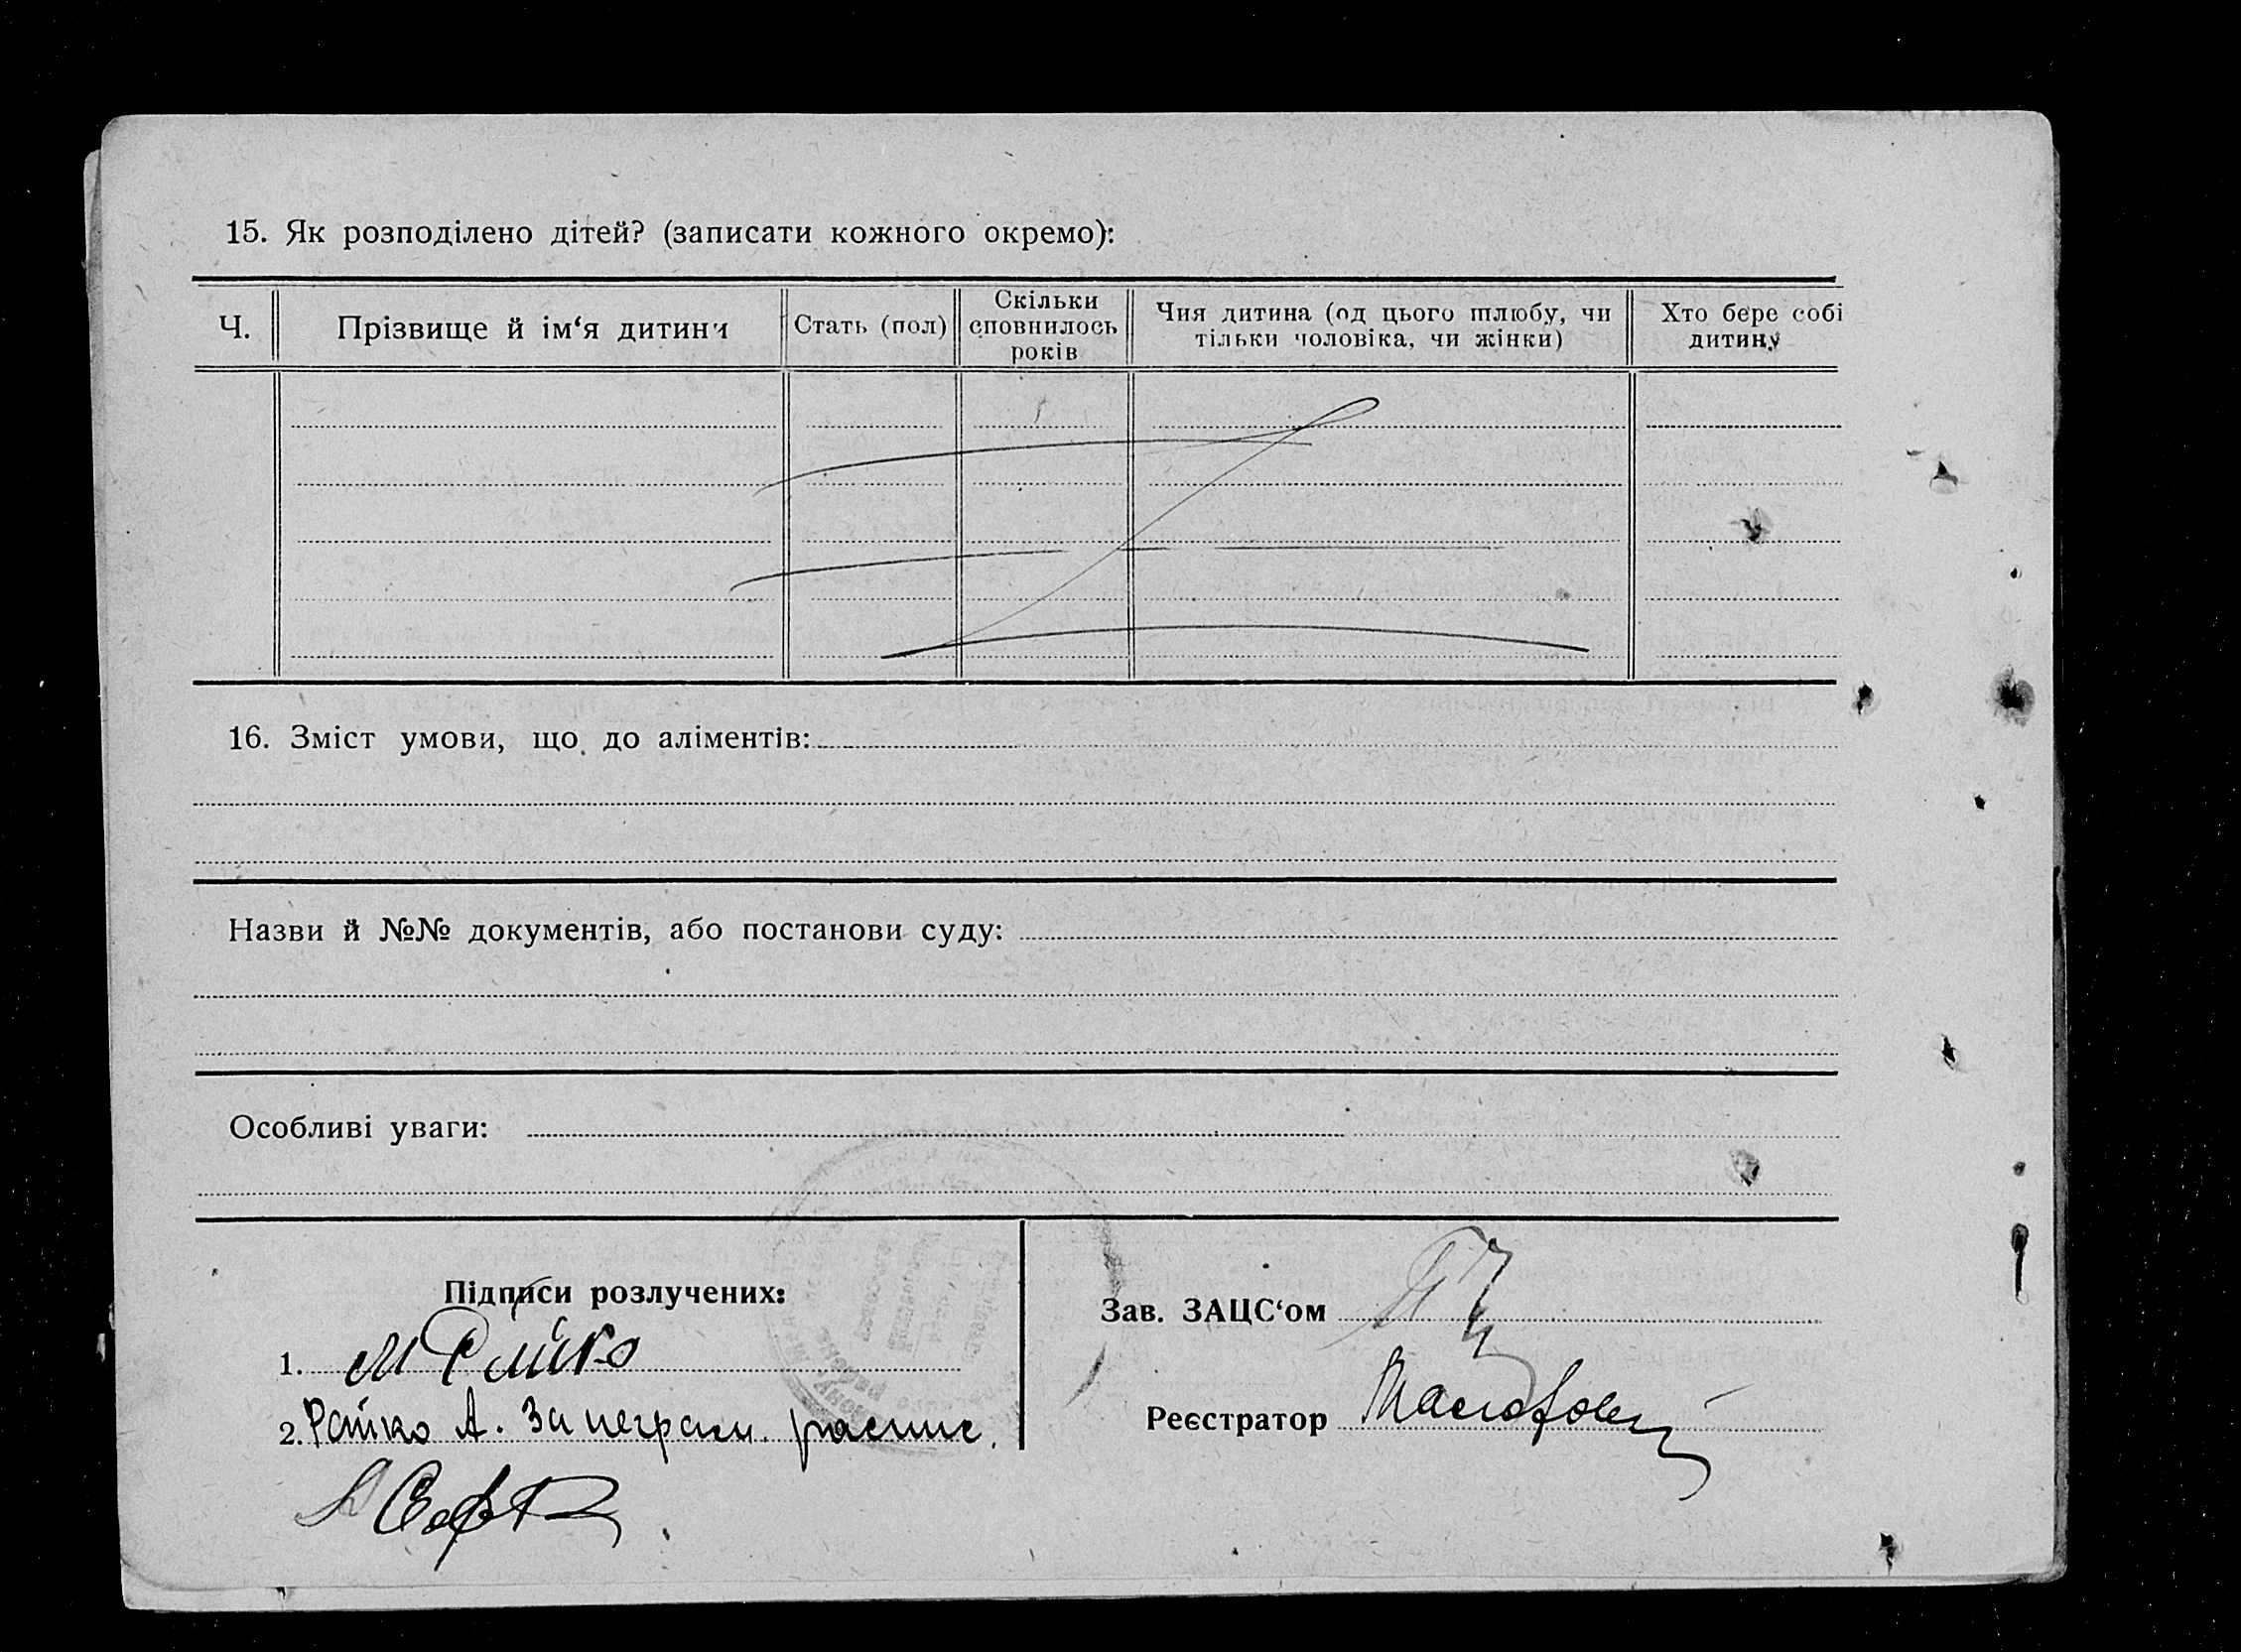 15. Як розподілено дітей? (записати кожного окремо):
Ч. Прізвище й ім‘я дитини Стать (пол) Скільки сповнилось років Чия дитина (од цього шлюбу, чи тільки чоловіка, чи жінки) Хто бере собі дитину
16. Зміст умови, що до аліментів:
Назви й №№ документів, або постанови суду:
Особливі уваги:
Підписи розлучених:
1. М Райко
2. Райко А. За неграм. распис.
Зав. ЗАЦС‘ом
Реєстратор